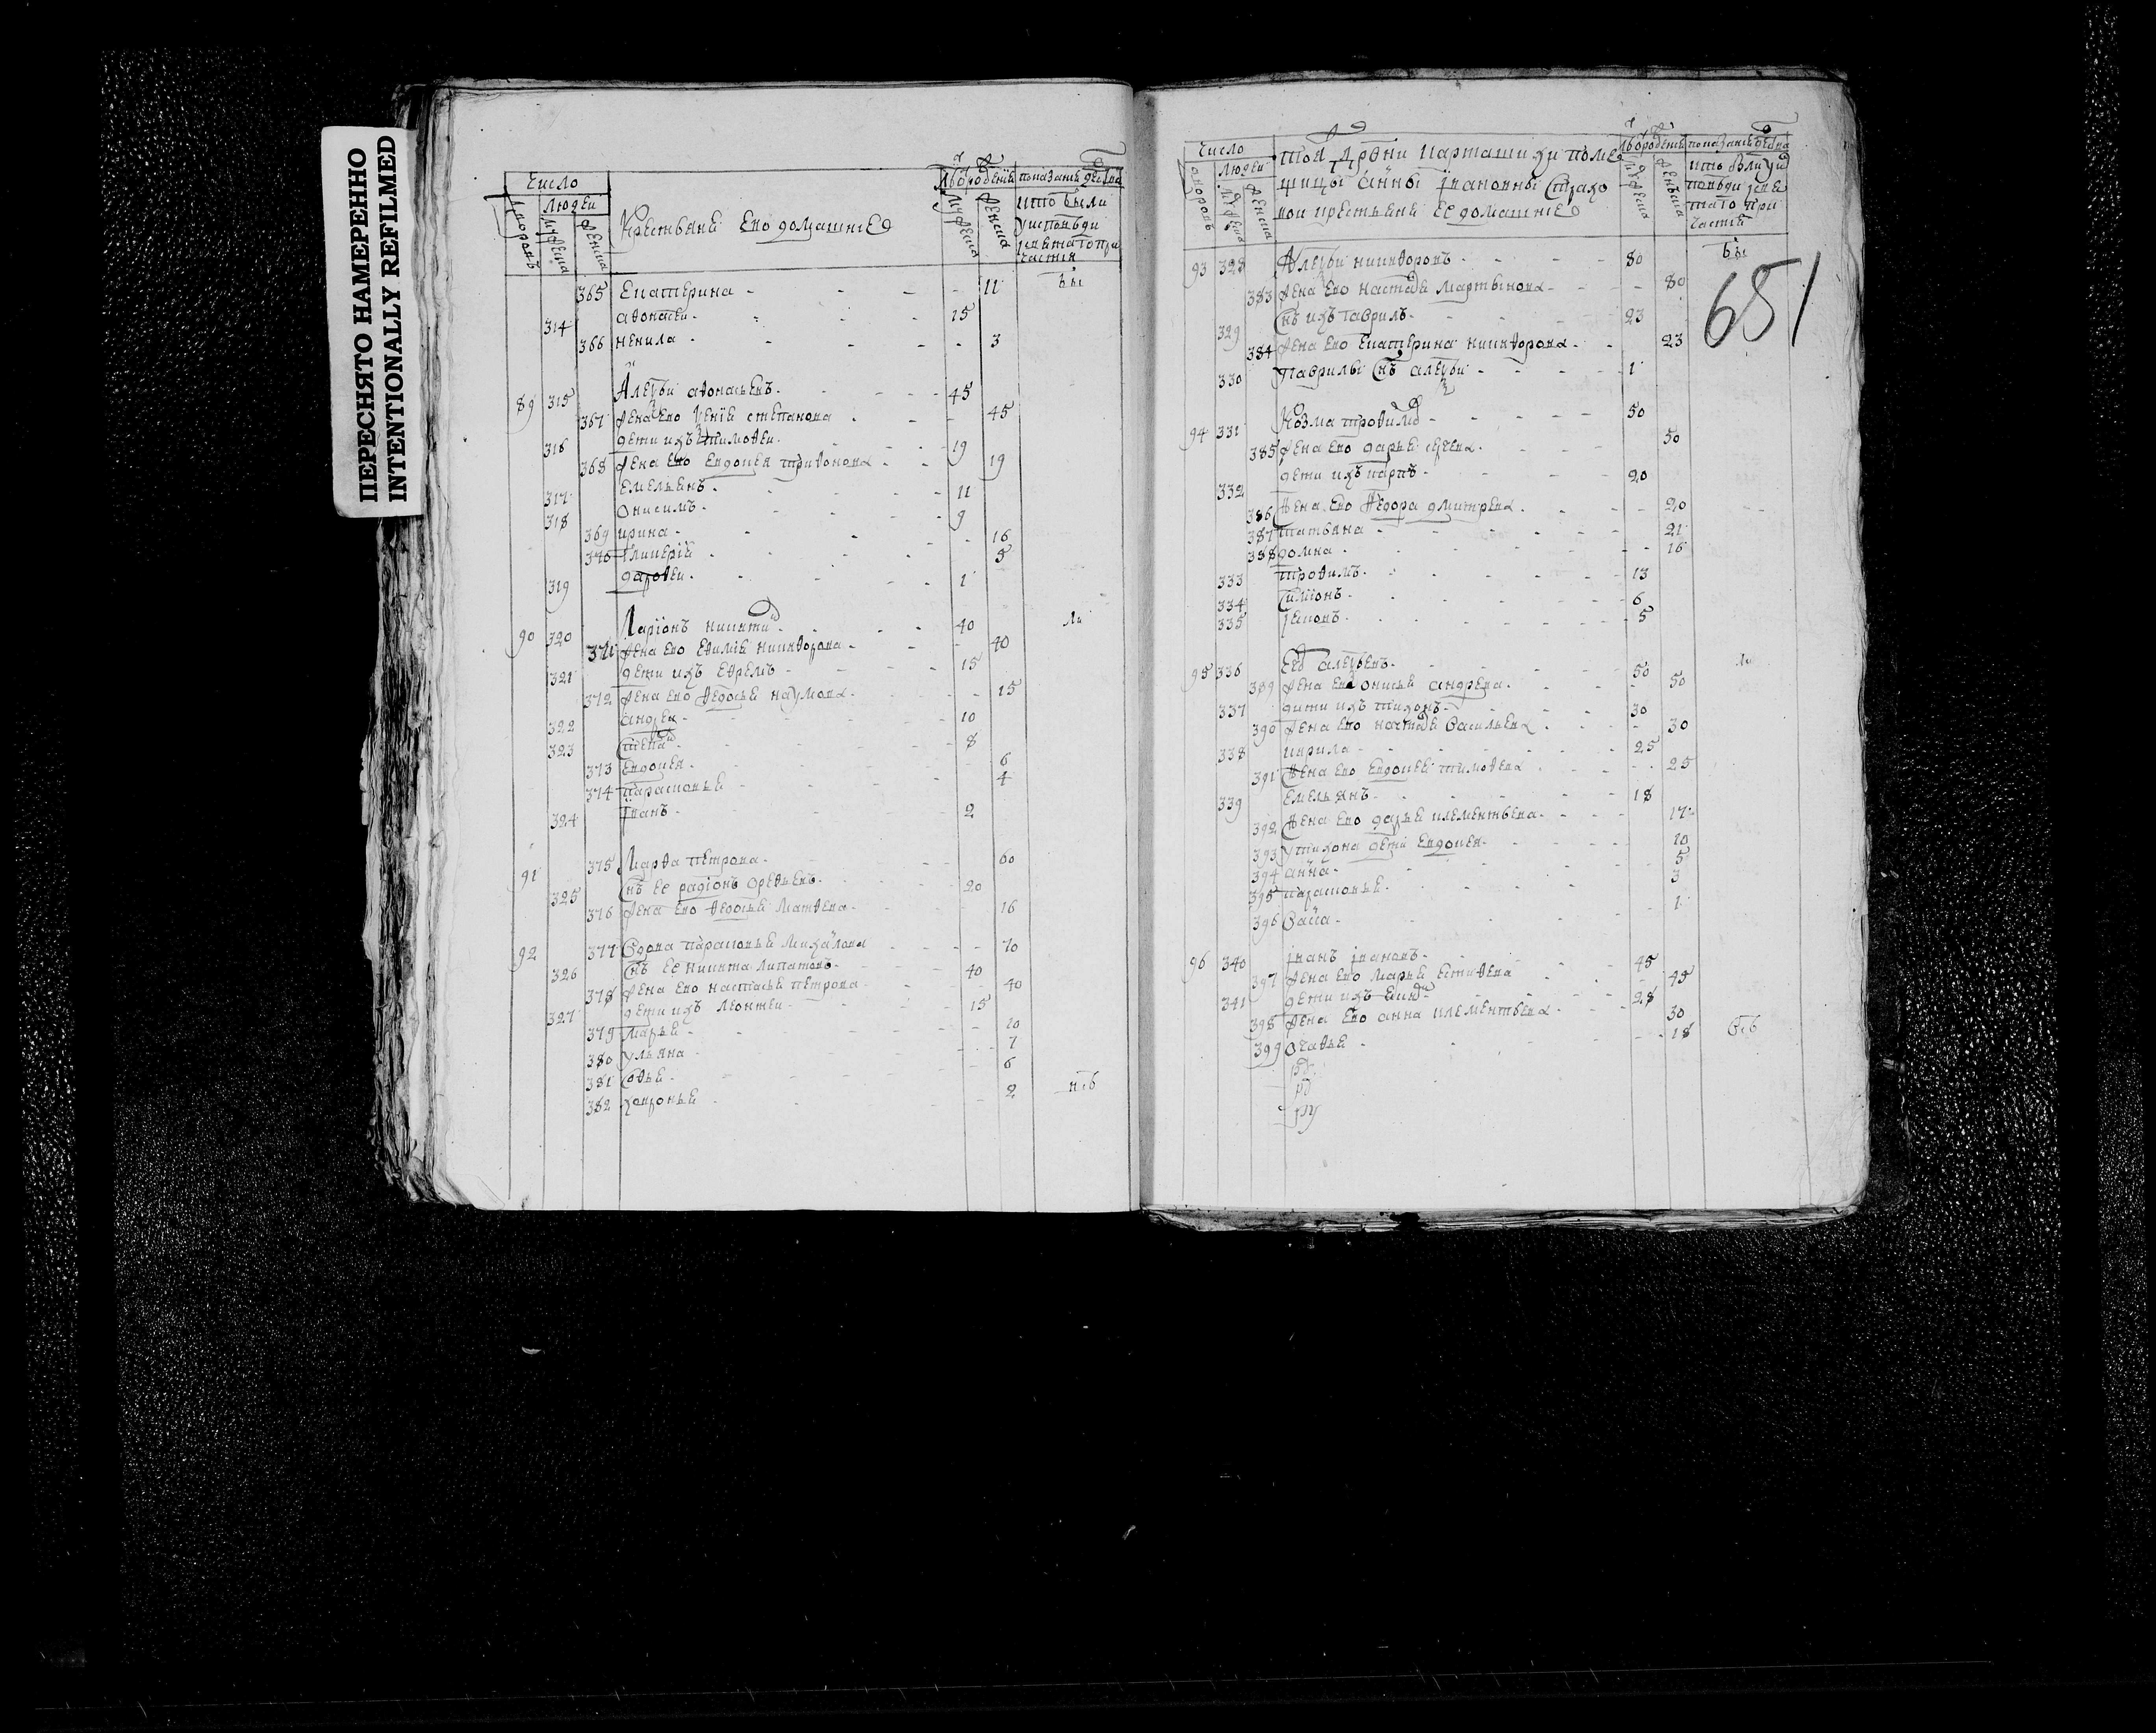 ПЕРЕСНЯТО НАМЕРЕННО
INTENTIONALLY REFILMED
Число
Людеи
Дворовъ
Мужеска
Женска
Крестьяне ево домашние
От рождения
Мужеска
Женска
показание действа
кто были
у исповеди
и святаго при
частия
365 Екатерина - 11 бы
314 афонасеи - 15
366 ненила - 3
89 315 Алеѯѣи афонасьевъ - 45
367 жена ево степанова - 45
316 дети ихъ тимофеи - 19
368 жена ево Евдокея трифонова - 19
317 Емельянъ - 11
318 Онисимъ - 9
369 ирина - 16
370 гликерия - 5
319 дарофеи - 1
90 320 Ларионъ никити - 40 ли
371 жена ево Ефимья никифорова - 40
321 дети ихъ Ефремъ - 15
372 жена ево федосья наумова - 15
322 андреи - 10
323 степа - 8
373 Евдокея - 6
374 парасковья - 4
324 Іванъ - 2
91 375 Марфа петрова - 60
325 снъ ее радіонъ - 20
376 жена ево федосья матвева - 16
92 377 вдова парасковья михаилова - 70
326 снъ ее никита липатовъ - 40
378 жена ево настасья петрова - 40
327 дети ихъ леонтеи - 15
379 марья - 10
380 ульяна - 7
381 софья - 6
382 ховронья - 2
Число
Людеи
Дворовъ
Мужеска
Женска
тоя дрвни карташихи поме
щицы анны івановны страхо
вои крестьяне ее домашние
От рождения
Мужеска
Женска
показание действа
кто были у ис
поведи и свя
таго при
частия
651
93 328 Алеѯѣи никифоровъ - 80 бы
383 жена ево настасья мартынова - 80
329 снъ ихъ гаврилъ - 23
384 жена ево Екатерина никифорова - 23
330 гаврилы снъ алеѯѣи - 1
94 331 Козма трофимо - 50
385 жена ево дарья сергева - 50
332 дети ихъ карпъ - 20
386 жена ево федора дмитрева - 20
387 татьяна - 21
388 домна - 16
333 трофимъ - 13
334 симіонъ - 6
335 - 5
95 336 алеѯѣевъ - 50 ли
389 жена ево онисья андрева - 50
337 дети ихъ тихонъ - 30
390 жена ево настасья васильева - 30
338 кирила - 25
391 жена ево Евдокея тимофева - 25
339 Емельянъ - 18
392 жена ево дарья клементьева - 17
393 у тихона дети Евдокея - 10
394 анна - 5
395 парасковья - 3
396 васса - 1
96 340 іванъ івановъ - 45
397 жена ево марья - 45
341 дети ихъ - 28
398 жена ево анна клементьева - 30
399 - 18